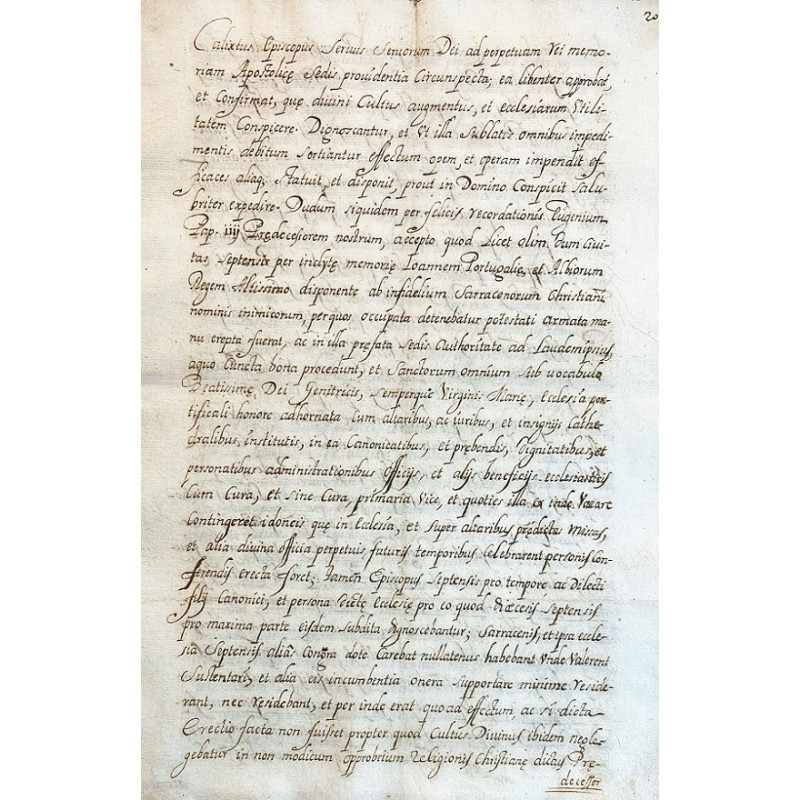 20
Calixtus Episcopus Servus Servorum Dei ad perpetuam rei memo-
riam Apostolicę Sedis providentia Circunspecta; ea libenter approbat,
et Confirmat, quę divini Cultus augmentus, et ecclesiarum Utili-
tatem Conspicere Dignoscantur, et Ut illa Sublatis omnibus impedi-
mentis debitum Sortiantur effectum opem, et operam impendit ef
ficaces aliaq; Statuit, et disponit, prout in Domino Conspicit Salu-
briter expedire. Dudum siquidem per felicis recordationis Eugenium
Pap. iiij Prędecessorem nostrum, accepto quod Licet olim dum Civi-
tas Septensis per inclytę memorię Ioannem Portugalię, et Albiorum
Regem Altissimo disponente ab infidelium Sarraconorum Christiani
nominis inimicorum, per quos occupata detenebatur potestati armata ma-
nu erepta fuerat, ac in illa prefata Sedis Authoritate ad Laudem ipsius,
a quo Cuncta bona procedunt, et Sanctorum omnium Sub vocabulo
Beatissimę, Dei Genitricis, Semperque Virginis Marię, Ecclesia pon-
tificali honore adhornata Cum altaribus, ac iuribus, et insignijs Cathe-
dralibus, institutis, in ea Canonicatibus, et prebendis, Dignitatibus, et
personatibus administrationibus officijs, et alijs beneficijs ecclesiasticis
Cum Cura, et Sine Cura, primaria Vice, et quoties illa ex inde Vacare
Contingeret idoneis quę in Ecclesia, et Super altaribus prędictis Missas,
et alia divina officia perpetuis futuris temporibus Celebrarent personis Con-
ferendis erecta foret; tamen Episcopus Septensis pro tempore ac Dilecti
filij Canonici, et persona dictę Ecclesię pro eo quod Diœcesis Septensis
pro maxima parte eisdem subdita dignoscebantur; Sarracenis, et ipsa eccle-
sia Septensis alias Congra dote Carebat nullatenus habebant Unde Valerent
Sustentari, et alia eis incumbentia onera supportare minime reside-
rant, nec residebant, et per inde erat quo ad effectum, ac si dicta
Erectio facta non fuisset propter quod Cultus Divinus ibidem negle-
gebatur in non modicum opprobrium religionis Christianę dictus Prę-
decessor